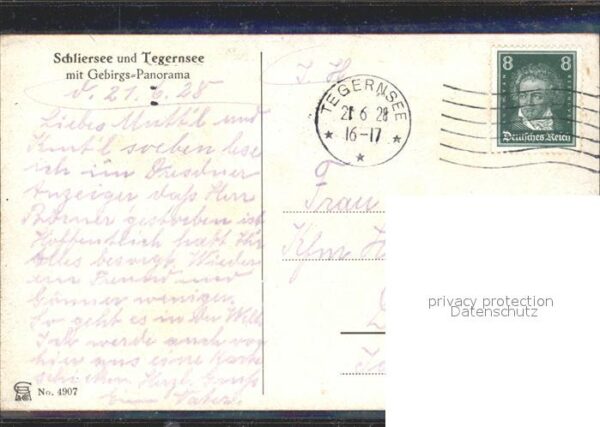 Schliersee und Tegernsee
mit Gebirgs-Panorama
d. 21. 6. 28
Liebes Muttil und
soeben lese
ich im Dresdner
Anzeiger daß Herr
Börner gestorben ist
Hoffentlich habt Ihr
alles besorgt. Wieder
ein Freund und
Gönner weniger.
So geht es in der Welt
Ich werde auch von
hier aus eine Karte
schicken. Herzl. Gruß
Euer Vater.
No. 4907
TEGERNSEE
21 6 28
16-17
8 8
Deutsches Reich
Frau
privacy protection
Datenschutz